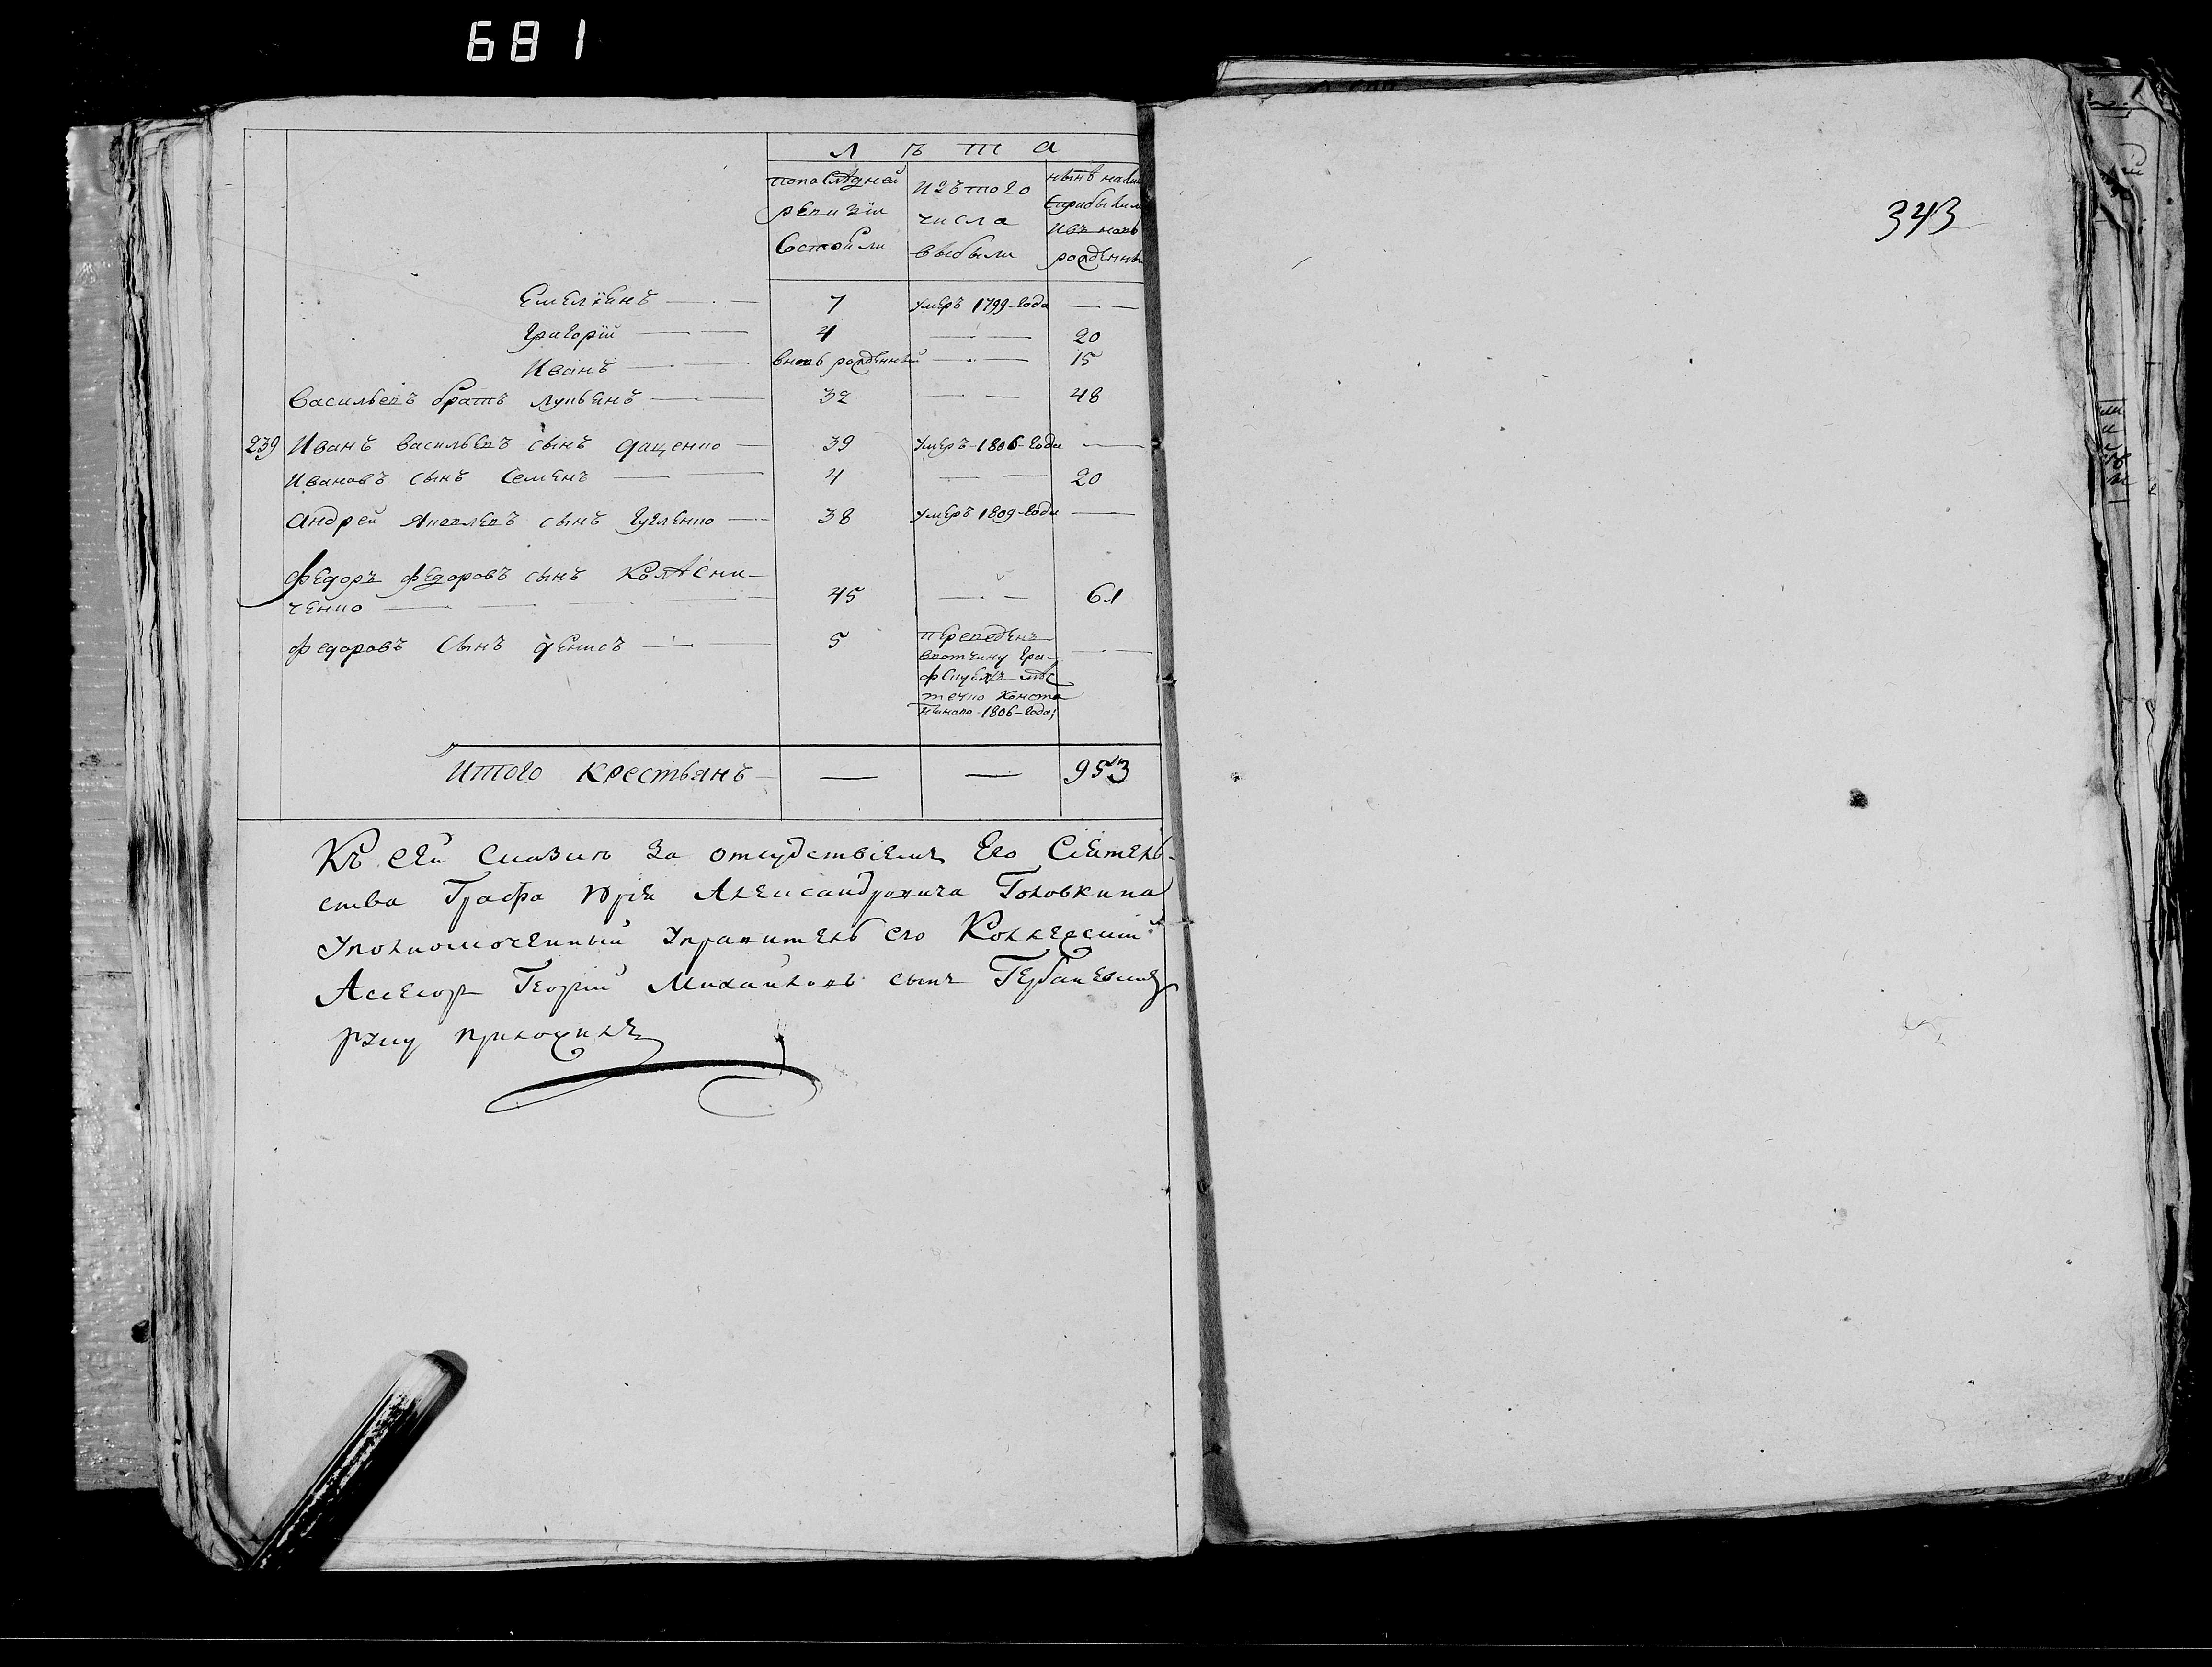 681
343
Л Ѣ Т А
попослѣдней ревизіи состояли
изътого числа выбыли
нынѣ налицо съприбылыми ивъновь рожденны
Емелїянъ — 7 умеръ 1799-года —
Григорїй — 4 — 20
Иванъ — вновь рожденный — 15
Васильевъ братъ Лукьянъ — 32 — 48
239 Иванъ Васильевъ сынъ Даценко — 39 умеръ-1806-года —
Ивановъ сынъ Семенъ — 4 — 20
Андрей Яковлевъ сынъ — 38 умеръ 1809-года —
Федоръ Федоровъ сынъ Колѣсни-
ченко — 45 — 61
Федоровъ сынъ Денисъ — 5 переведенъ
вотчину Гра-
фскую въ мѣс
течко Конста
тиново-1806-года;
Итого крестьянъ — — 953
Къ сей сказкѣ за отсудствіемъ Его Сіятель-
ства Графа Юрія Александровича Головкина
Уполномоченный Управитель его Коллежскій
Асесоръ Георгій Михайловъ сынъ
руку приложилъ